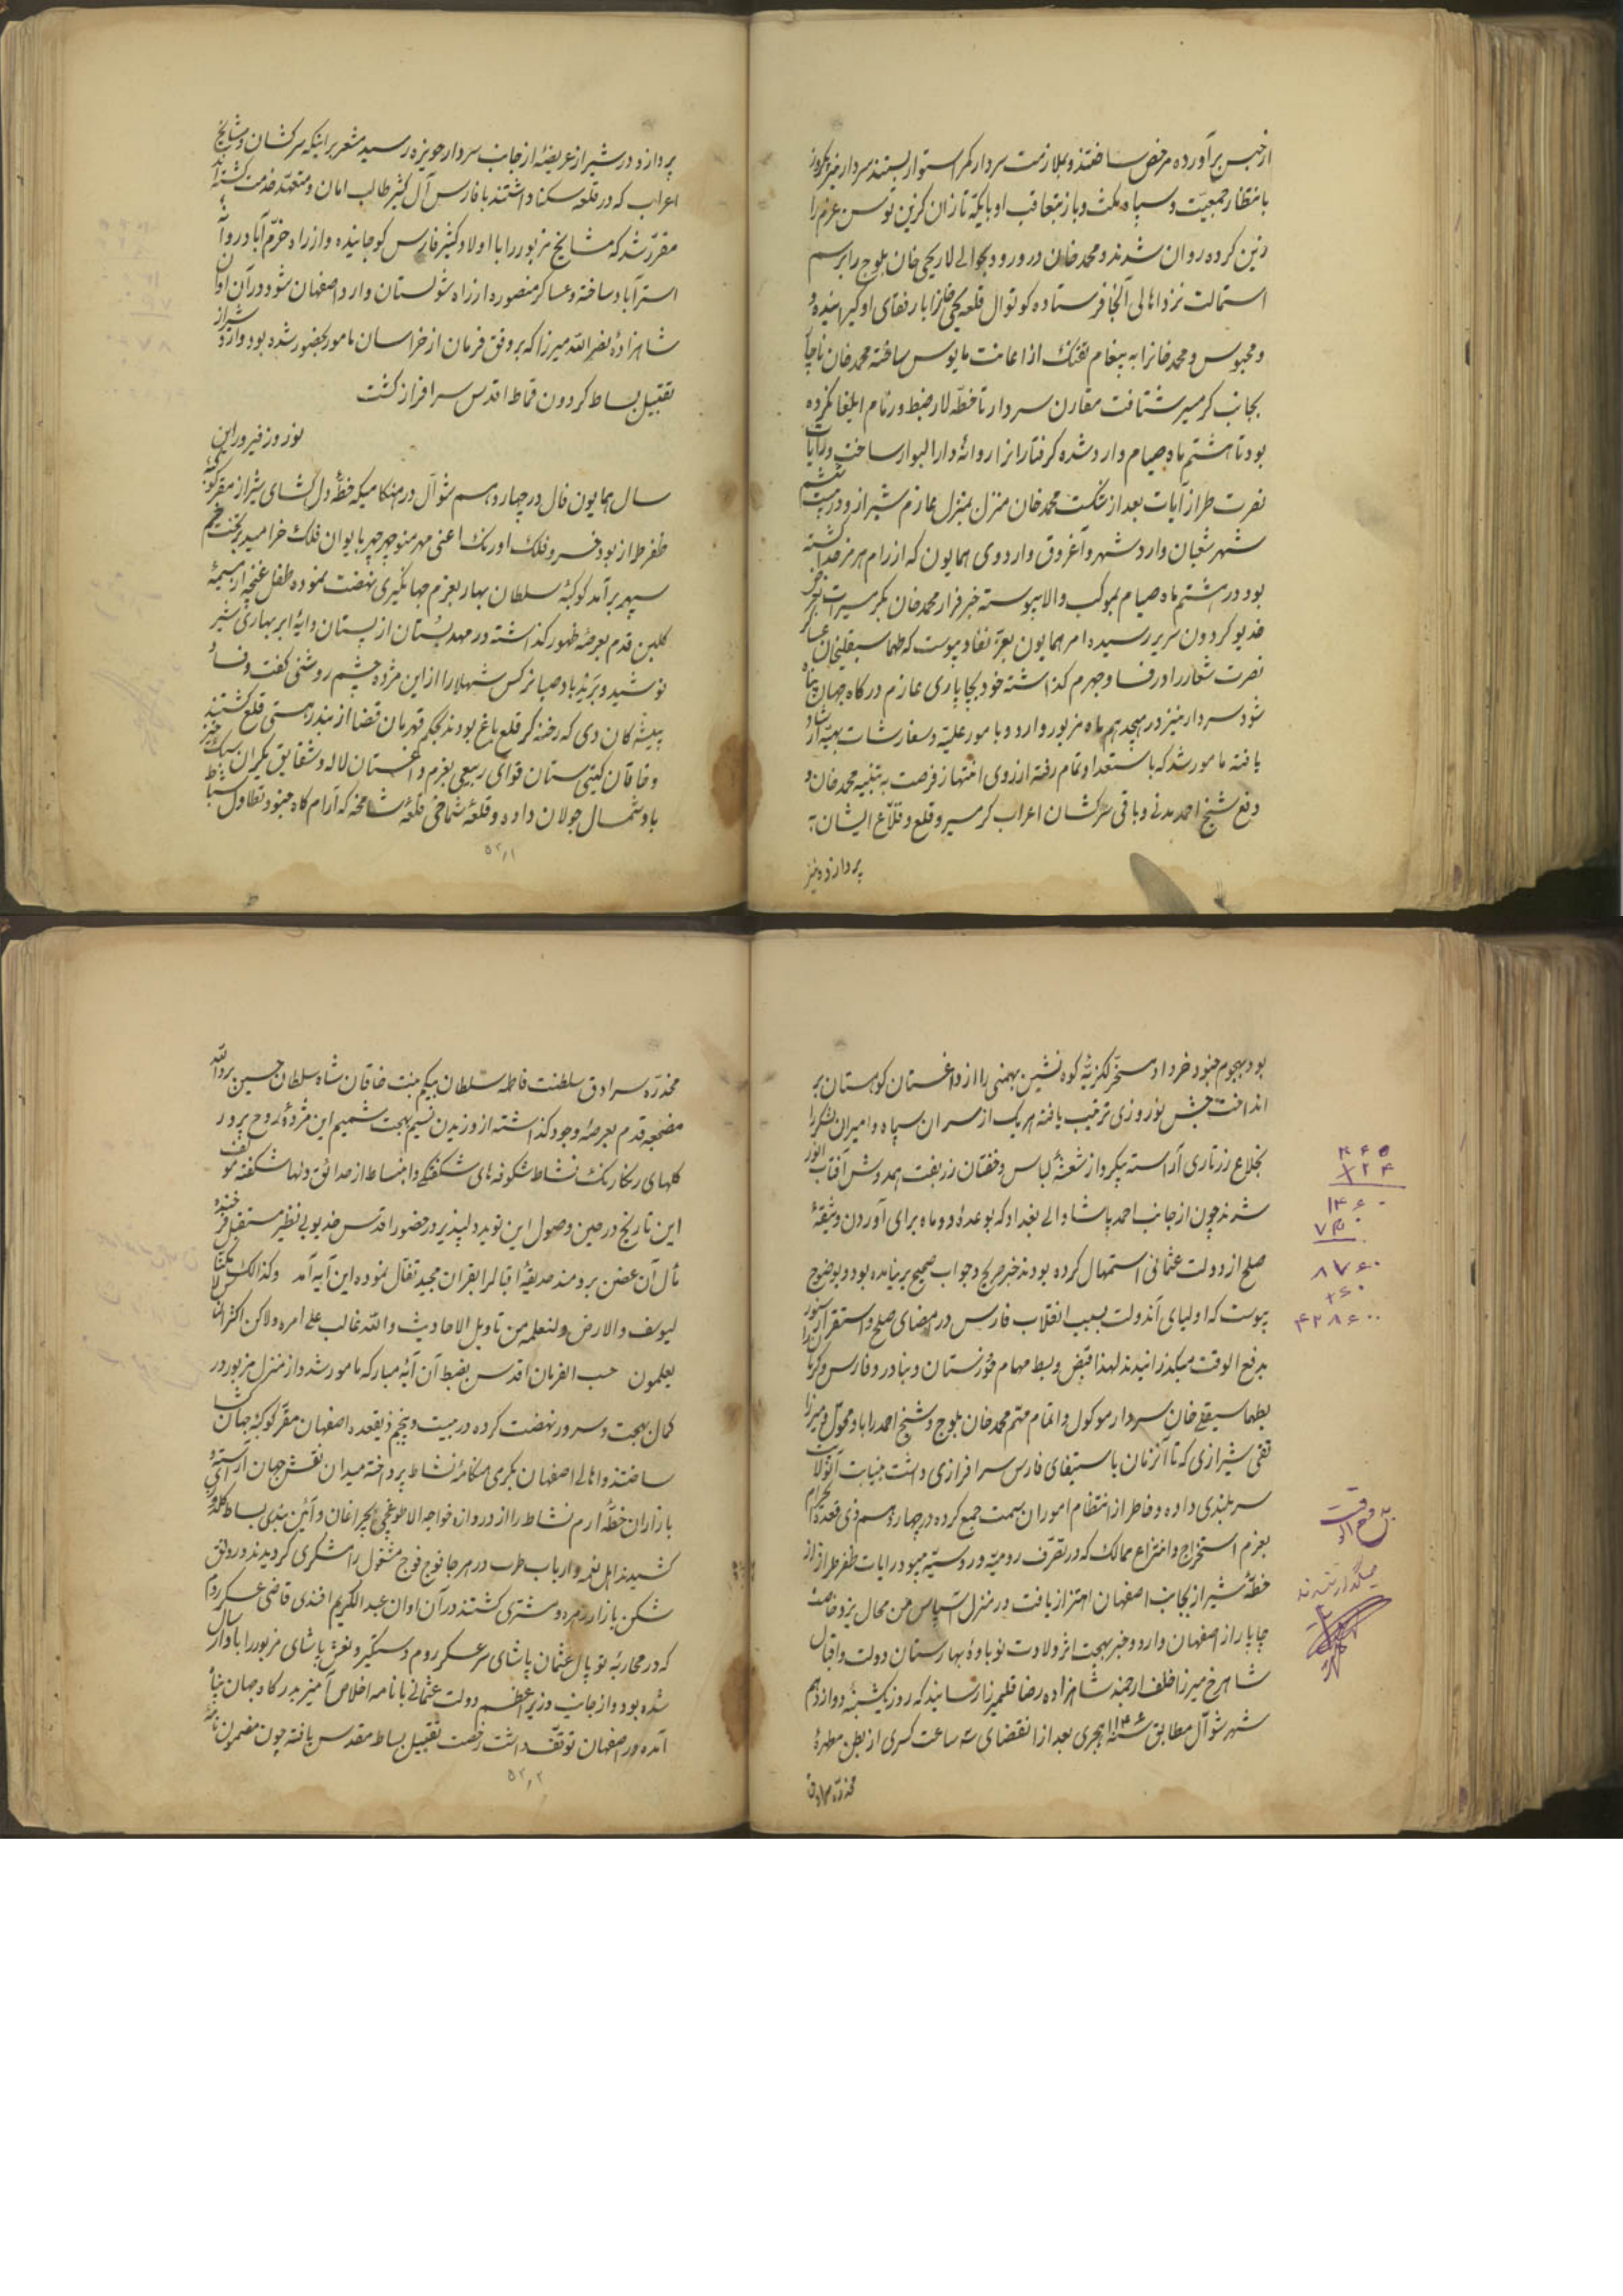 از حبس برآورده مرخص ساختند و بملازمت سردار کمر استوار بستند سردار نیز یکروز
بانتظار جمعیّت و سپاه مکث و باز متعاقب او با یکّه تازان گزین توسن عزم را
زین کرده روان شدند و محمد خان در ورود بحوالے لار یحیی خان بلوچ را برسم
استمالت نزد اهالی آنجا فرستاده کوتوال قلعه یحیی خانرا با رفقای او گیرانیده و
و محبوس و محمد خانرا به پیغام تفنگ از اعانت مایوس ساخته محمد خان ناچار
بجانب گرمسیر شتافت مقارن سردار تا خطّه لار ضبط و زمام ایلغار کرده
بود تا هشتم ماه صیام وارد شده گرفتارانرا روانهٔ دار البوار ساخت و رایات
نصرت طراز آیات بعد از شکست محمد خان منزل بمنزل عازم شیراز و در بیست ششم
شهر شعبان وارد شهر و آغروق و اردوی همایون که از رام هرمز جدا گشته
بود در هشتم ماه صیام بموکب والا پیوسته خبر فرار محمد خان بگرمسیرات بعرض
خدیو گردون سریر رسیده امر همایون بعزّ نفاذ پیوست که طهماسبقلیخان عساکر
نصرت شعار را در فسا و جهرم گذاشته خود بچاپاری عازم درگاه جهان پناه
شود سردار نیز در هیجدهم ماه مزبور وارد و بامور علیّه و سفارشات بهیّه ارشاد
یافته مامور شد که با ستعداد تمام رفته از روی انتهاز فرصت به تنبیه محمد خان و
دفع شیخ احمد مدنی و باقی سرکشان اعراب گرمسیر و قلع و قلاع ایشان
پردازد و نیز
پردازد و در شیراز عریضهٔ از جانب سردار حویزه رسید مشعر براینکه سرکشان و مشایخ
اعراب که در قلعه سکنا داشتند با فارس آل کثیر طالب امان و متعهّد خدمت گشته‌اند
مقرّر شد که مشایخ مزبور را با اولاد کثیر فارس کوچانیده و از راه خرّم آباد روانهٔ
استراباد ساخته و عساکر منصوره از راه شولستان وارد اصفهان شود و در آن اوان
شاهزادهٔ نصرالله میرزا که بر وفق فرمان از خراسان مامور بحضور شده بود وارد شیراز
تقبیل بساط گردون قماط اقدس سرافراز گشت
نوروز فیروز این
سال همایون فال در چهاردهم شوّال در هنگامیکه خطّهٔ دل گشای شیراز مقرّ کوکبهٔ
ظفر طراز بود خسرو فلک اورنک اعنی مهر منوچهر چهر بایوان فلک خرامید بر تخت
سپهر برآمد کوکبهٔ سلطان بهار بعزم جهانگیری نهضت نموده طفل غنچه از مشیمهٔ
گلبن قدم بعرصهٔ ظهور گذاشته در مهد بستان از پستان دایهٔ ابر بهاری شیر
نوشید و برید باد صبا نرگس شهلا را از این مژده چشم روشنی گفت و فساد
پیشه‌کان دی که رخنه‌گر قلع باغ بودند بحکم قهرمان قضا از بند هستی قلع گشتند
و خاقان گیتی ستان قوای ربیعی بعزم داغستان لاله و شقایق یکران سبک خیز
باد شمال جولان داده و قلعهٔ شماخی قلعهٔ شامخه که آرام گاه جنود تطاول شتا
۵۲٫۱
بود بهجوم جنود خرداد مسخّر لکزیّهٔ کوه نشین بهمنی را از داغستان کوهستان بر
انداخت جشن نوروزی ترتیب یافته هر یک از سران سپاه و امیران لشکر را
بخلاع زرتاری آراسته پیکر و از شعشعهٔ لباس و خفتان زربفت همدوش آفتاب انور
شدند چون از جانب احمد پاشا والے بغداد که بوعدهٔ دو ماه برای آوردن وثیقهٔ
صلح از دولت عثمانی استمهال کرده بودند خبر صریح و جواب صحیح بر نیامده بود و بوضوح
پیوست که اولیای آندولت بسبب انقلاب فارس در مضای صلح و استقرار سنور
بدفع الوقت میگذرانیدند لهذا قبض و بسط مهام خوزستان و بنادر و فارس و کرمانرا
بطهماسبقلے خان سردار موکول و اتمام مهّم محمد خان بلوچ و شیخ احمد را باو محوّل و میرزا
تقی شیرازی که تا آنزمان باستیفای فارس سرافرازی داشت بنیابت آنولایت
سربلندی داده و خاطر از انتظام امور ان سمت جمع کرده در چهاردهم ذی قعدة الحرام
بعزم استخراج و انتزاع ممالک که در تصّرف رومیّه و روسیّه میبود رایات ظفر طراز از
خطّهٔ شیراز بجانب اصفهان اهتزاز یافت در منزل آسپاس من محال یزدخاست
چاپار از اصفهان وارد و خبر بهجت اثر ولادت نوباوهٔ بهارستان دولت و اقبال
شاهرخ میرزا خلف ارجمند شاهزاده رضا قلیمیرزا رسانید که روز یکشنبه دوازدهم
شهر شوّال مطابق سنه ۱۱۴۶ هجری بعد از انقضای سه ساعت کسری از بطن مطهرهٔ
مخدّره سرادق
۳۶۵
×۲۴
۱۴۶۰
۷۳۰
۸۷۶۰
۲۵۰
۴۳۸۶۰۰
بدفع الوقت
میگذرانیدند
مخدّره سرادق سلطنت فاطمه سلطان بیگم بنت خاقان شاه سلطان حسین بردالله
مضجعه قدم بعرصهٔ وجود گذاشته از وزیدن نسیم بهجت شمیم این مژدهٔ روح پرور
گلهای رنگارنگ نشاط شگوفه‌های شگفتگے و انبساط از حدائق دلها شکفته مؤلف
این تاریخ در حین وصول این نوید دلپذیر در حضور اقدس خدیو بی نظیر مستقبل خجسته
مآل آن غصن برومند حدیقهٔ اقبالرا بقران مجید تفأل نموده این آیه آمد وکذالک مکنّا
لیوسف والارض ولنعلمه من تاویل الاحادیث والله غالب علے امره ولاکن اکثر الناس لا
یعلمون حسب الفرمان اقدس بضبط آن آیهٔ مبارکه مامور شد و از منزل مزبور در
کمال بهجت و سرور نهضت کرده در بیست و پنجم ذیقعده اصفهان مقرّ کوکبهٔ جهان گشا
ساختند و اهالے اصفهان بگرمی هنگامهٔ نشاط پرداخته میدان نقش جهان آراسته و
بازاران خطّهٔ ارم نشاط را از دروازه خواجه الا طوقچی بچراغان و آئین بندی بساط گلدوزی
کشیدند اهل نغمه و ارباب طرب در هر جا فوج فوج مشغول رامشگری گردیدند و رونق
شکن بازار زهره و مشتری گشتند در آن اوان عبدالکریم افندی قاضی عسکر روم
که در محاربهٔ توپال عثمان پاشای سرعسکر روم دستگیر و نعش پاشای مزبور را باو ارسال
شده بود و از جانب وزیر اعظم دولت عثمانی با نامه اخلاص آمیز بدرگاه جهان پناه
آمده در اصفهان توقّف داشت رخصت تقبیل بساط مقدس یافته چون مضمون نامه
۵۲٫۲